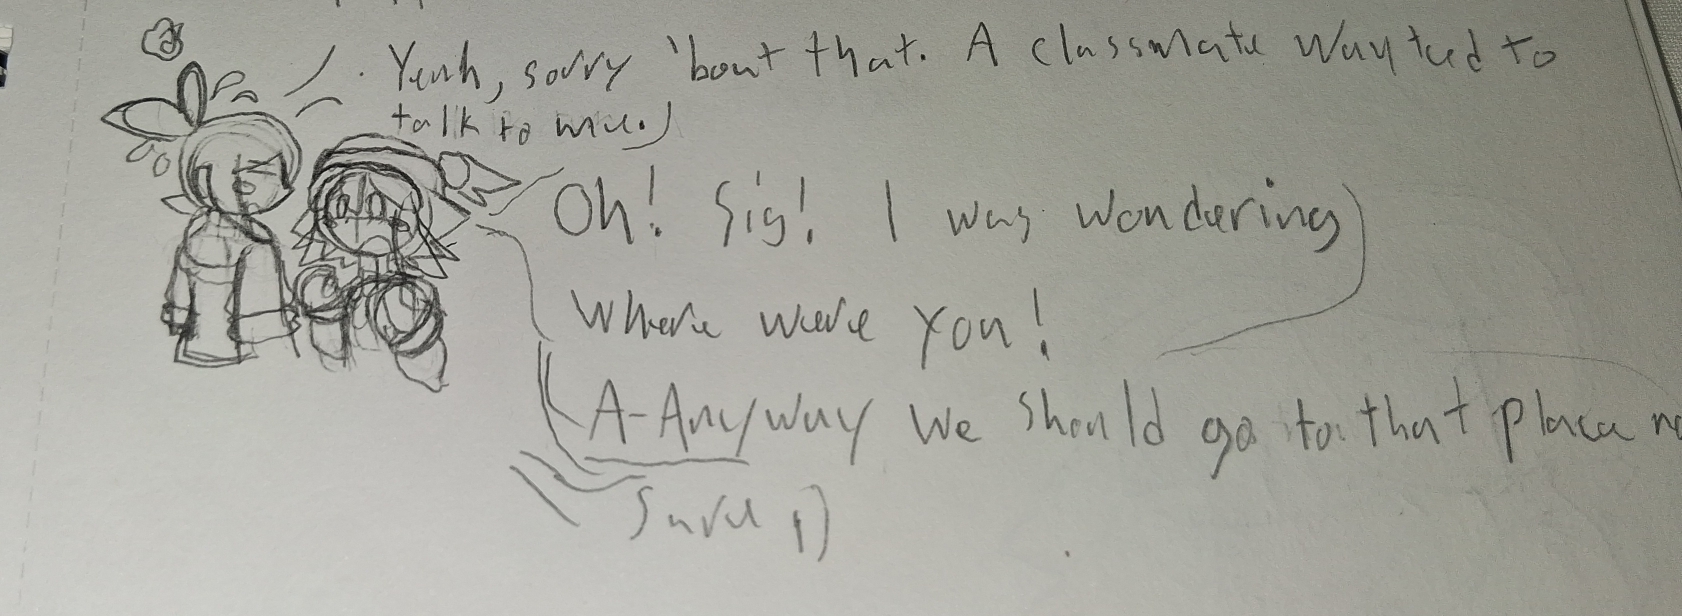 Yeah, sorry 'bout that. A classmate wanted to
talk to me.
Oh! Sig! I was wondering
where were you!
A-Anyway we should go to that place
Sure